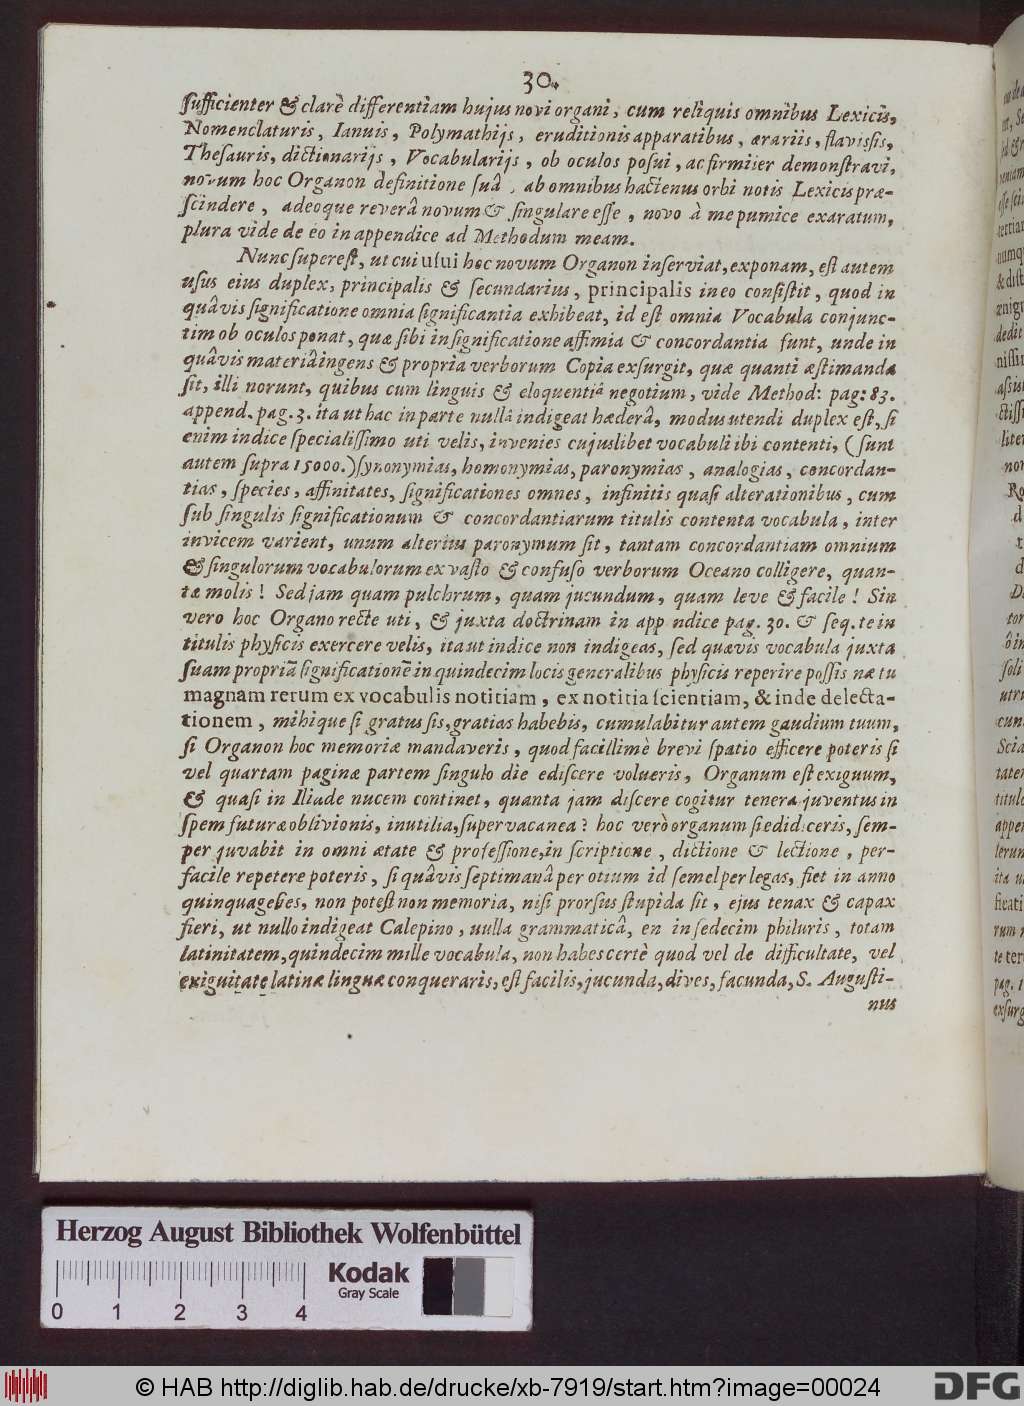 30.
ſufficienter & clarè differentiam hujus novi organi, cum reliquis omnibus Lexicis,
Nomenclaturis, Ianuis, Polymathijs, eruditionis apparatibus, ærariis, flavissis,
Theſauris, dictionarijs, Vocabularijs, ob oculos poſui, ac firmiter demonſtravi,
novum hoc Organon definitione ſuâ, ab omnibus hactenus orbi notis Lexicis præ-
ſcindere, adeoque reverâ novum & ſingulare eſſe, novo à me pumice exaratum,
plura vide de eo in appendice ad Methodum meam.
Nunc ſupereſt, ut cui uſui hoc novum Organon inſerviat, exponam, eſt autem
uſus eius duplex, principalis & ſecundarius, principalis in eo conſiſtit, quod in
quâvis ſignificatione omnia ſignificantia exhibeat, id eſt omnia Vocabula conjunc-
tim ob oculos ponat, quæ ſibi in ſignificatione affinia & concordantia ſunt, unde in
quâvis materiâ ingens & propria verborum Copia exſurgit, quæ quanti æſtimanda
ſit, illi norunt, quibus cum linguis & eloquentiâ negotium, vide Method: pag: 83.
append. pag. 3. ita ut hac in parte nullâ indigeat hæderâ, modus utendi duplex eſt, ſi
enim indice ſpecialiſſimo uti velis, invenies cujuslibet vocabuli ibi contenti, (ſunt
autem ſupra 15000.) ſynonymias, homonymias, paronymias, analogias, concordan-
tias, ſpecies, affinitates, ſignificationes omnes, infinitis quaſi alterationibus, cum
ſub ſingulis ſignificationum & concordantiarum titulis contenta vocabula, inter
invicem varient, unum alterius paronymum ſit, tantam concordantiam omnium
& ſingulorum vocabulorum ex vaſto & confuſo verborum Oceano colligere, quan-
tæ molis! Sed jam quam pulchrum, quam jucundum, quam leve & facile! Sin
vero hoc Organo recte uti, & juxta doctrinam in app ndice pag. 30. & ſeq. te in
titulis phyſicis exercere velis, ita ut indice non indigeas, ſed quævis vocabula juxta
ſuam propriã ſignificationẽ in quindecim locis generalibus phyſicis reperire poſſis næ tu
magnam rerum ex vocabulis notitiam, ex notitia ſcientiam, & inde delecta-
tionem, mihique ſi gratus ſis, gratias habebis, cumulabitur autem gaudium tuum,
ſi Organon hoc memoriæ mandaveris, quod facillimè brevi ſpatio efficere poteris ſi
vel quartam paginæ partem ſingulo die ediſcere volueris, Organum eſt exiguum,
& quaſi in Iliade nucem continet, quanta jam diſcere cogitur tenera juventus in
ſpem futuræ oblivionis, inutilia, ſupervacanea? hoc verò organum ſi edidiceris, ſem-
per juvabit in omni ætate & profeſſione, in ſcriptione, dictione & lectione, per-
facile repetere poteris, ſi quâvis ſeptimanâ per otium id ſemel perlegas, fiet in anno
quinquagebes, non poteſt non memoria, niſi prorſus ſtupida ſit, ejus tenax & capax
fieri, ut nullo indigeat Calepino, nulla grammaticâ, en in ſedecim philuris, totam
latinitatem, quindecim mille vocabula, non habes certè quod vel de difficultate, vel
exiguitate latinæ linguæ conqueraris, eſt facilis, jucunda, dives, facunda, S. Auguſti-
nus
Herzog August Bibliothek Wolfenbüttel
0 1 2 3 4
Kodak
Gray Scale
© HAB http://diglib.hab.de/drucke/xb-7919/start.htm?image=00024
DFG